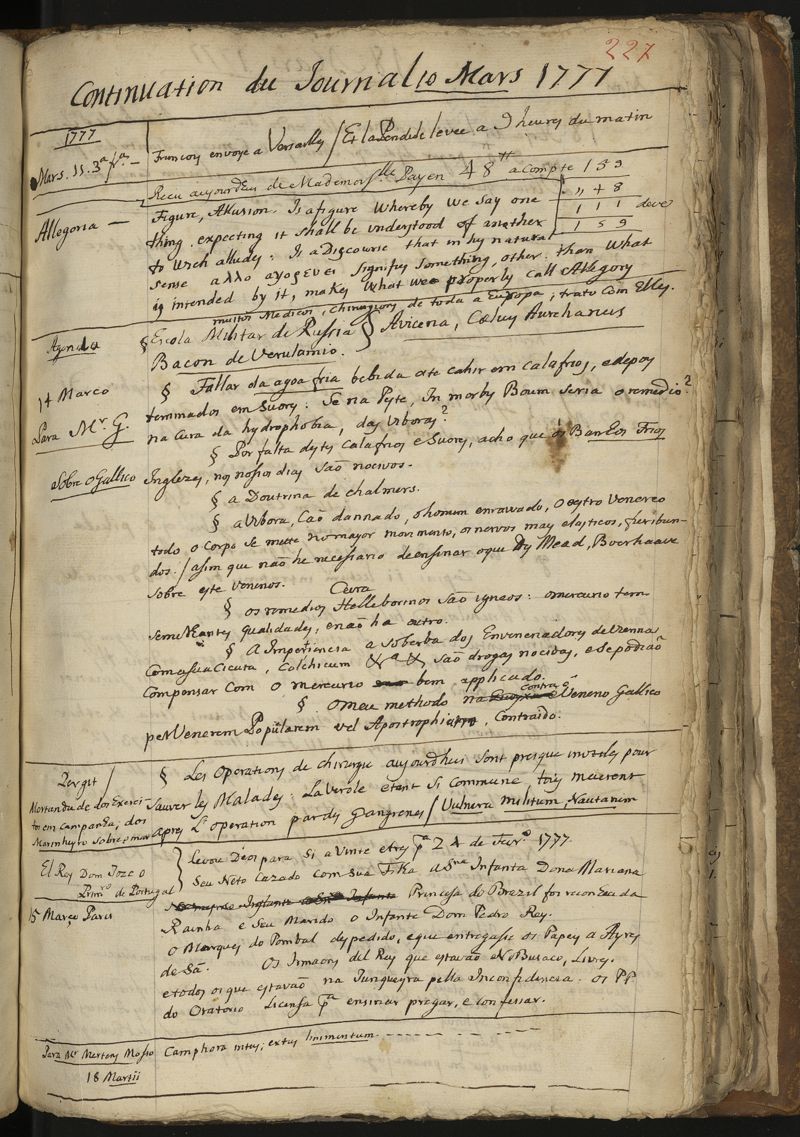 227
Continuation du Journal 10 Mars 1777
1777
Mars. 11. 3ª frª. — Françoy envoye a Versailles / Et la Pendule levee a 9 heures du matin
Recu aujordeu de Mademorslle Payen 48 tt a compte 1 5 9
Allegoria — Figure, Allusion. Is a figure Whereby We Say one " 4 8
thing expecting it Shall be understood of another 1 1 1 deve
to Wich alludes: Is a Discourse that in hys natural 1 5 9
sense αλλο αγορευει signifys Something other: than What
is intended by it, makes What We properly call Allegory
muitos Medicos, Chirurgions de toda a Europa; trato Com Elles.
Agenda § Escola Militar de Russia } Avicena, Cœlius Aurelianus
Bacon de Verulamio.
14 Marco § Fallar da agoa fria bebida ate cahir em Calafrios, e depoys
Para Mr. G. terminados em Suory: Se na Peste, In morby Boum Seria o remedio?
na Cura da hydrophobia, das Viboras?
§ Por falta destes Calafrios e Suores, acho que os Banhos Frios
Sobre o Gallico Inglezes, nos nossos dias São nocivos.
§ a Doutrina de Chalmers.
§ a Vibora, Cão dannado, o homem enraivado, o estro Venereo
todo o Corpo Se mette no mayor movimento, os nervos may elasticos,
dos. / asim que não he necessario de ensinar o que Mead, Boerhaave
Sobre este Venenos. Ceura
§ os remedios Helleborinos São igneos: o mercurio tem
Semelhantes qualidades, e não ha outro.
§ A Impertinencia a Soberba dos Envenenadores de Vienna
Com a Sua Cicuta, Colchicum &ª & São drogas nocivas, e Se podião
Compensar Com o mercurio bem applicado.
§ o meu methodo contra o Veneno Gallico
per Venerem Popularem vel Apostrophiam, Contraido.
Pergit / § Les Operations de chirurgie aujourdhui sont presque inutiles pour
Mortandade dos Exerci- Sauver les Malades: La Verole etant Si Commune tous meurent
tos em Campanha, dos
Marinheyros Sobre o mar Apres L'operation par des Gangrenes / Vulnera militum, Nautarum
El Rey Dom Joze o } levou Deos para Si a Vinte e tres pª 24 de Fevrº 1777.
Primrº de Portugal Seu Neto Cazado com Sua Filha a Srna Infanta Dona Mariana
15 Março Paris Princesa do Brazil foi reconheuda
Rainha e Seu Marido o Infante Dom Pedro Rey.
O Marques do Pombal despedido, e que entregasse os Papeys a Ayres
de Sá. Os Irmaons del Rey que estavão No Busaco, Livres.
e todos os que estavão na Junqueyra pella Inconfidencia. os PP.
do Oratorio Licensa pª ensinar pregar, e Confessar.
Para Mr Mertens Mosso Camphora intus; extus linimentum.
18 Martii